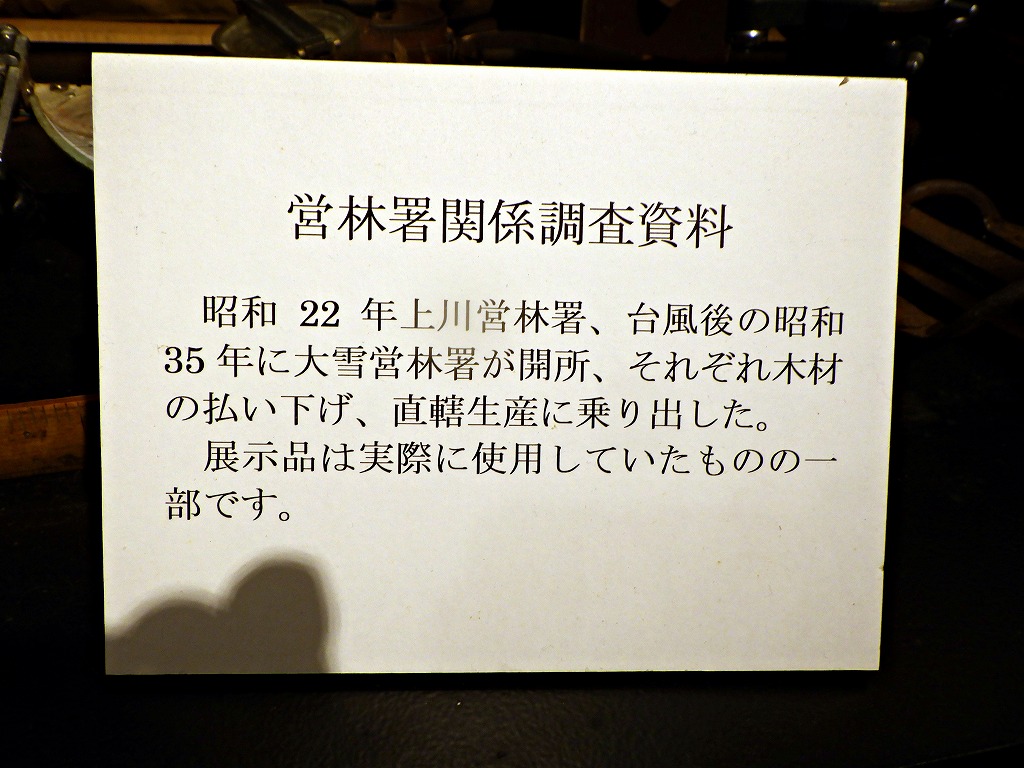 営林署関係調査資料
昭和 22 年上川営林署、台風後の昭和
35 年に大雪営林署が開所、それぞれ木材
の払い下げ、直轄生産に乗り出した。
展示品は実際に使用していたものの一
部です。